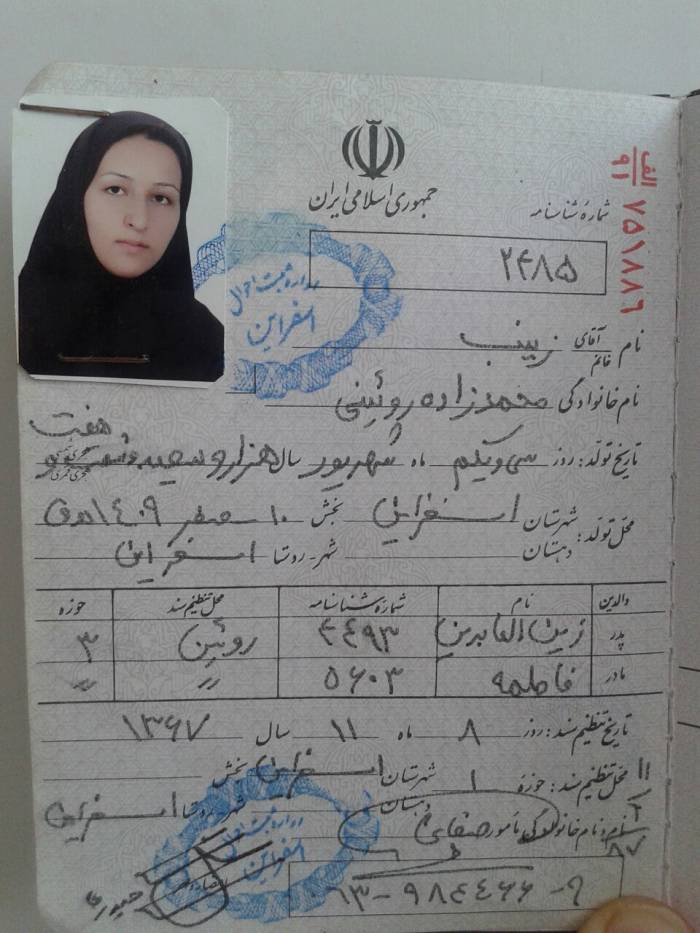 جمهوری اسلامی ایران
الف
۹۱
۷۵۱۸۸۶
شماره شناسنامه
۲۴۸۵
اداره ثبت احوال
اسفراین
نام آقای خانم زینب
نام خانوادگی محمدزاده روئینی
هفت
تاریخ تولد: روز سی و یکم ماه شهریور سال هزار و سیصد و شصت و
هجری شمسی
هجری قمری
محل تولد: شهرستان اسفراین بخش ۱۰ صفر ۱۴۰۹ هـ ق
دهستان شهر-روستا اسفراین
والدین نام شماره شناسنامه محل تنظیم سند حوزه
پدر زین العابدین ۴۴۹۳ روئین ۳
مادر فاطمه ۵۶۰۳ 〃 〃
تاریخ تنظیم سند: روز ۸ ماه ۱۱ سال ۱۳۶۷
محل تنظیم سند: حوزه ۱ شهرستان اسفراین بخش
دهستان شهر-روستا اسفراین
نام و نام خانوادگی مامور
اداره ثبت احوال
اسفراین